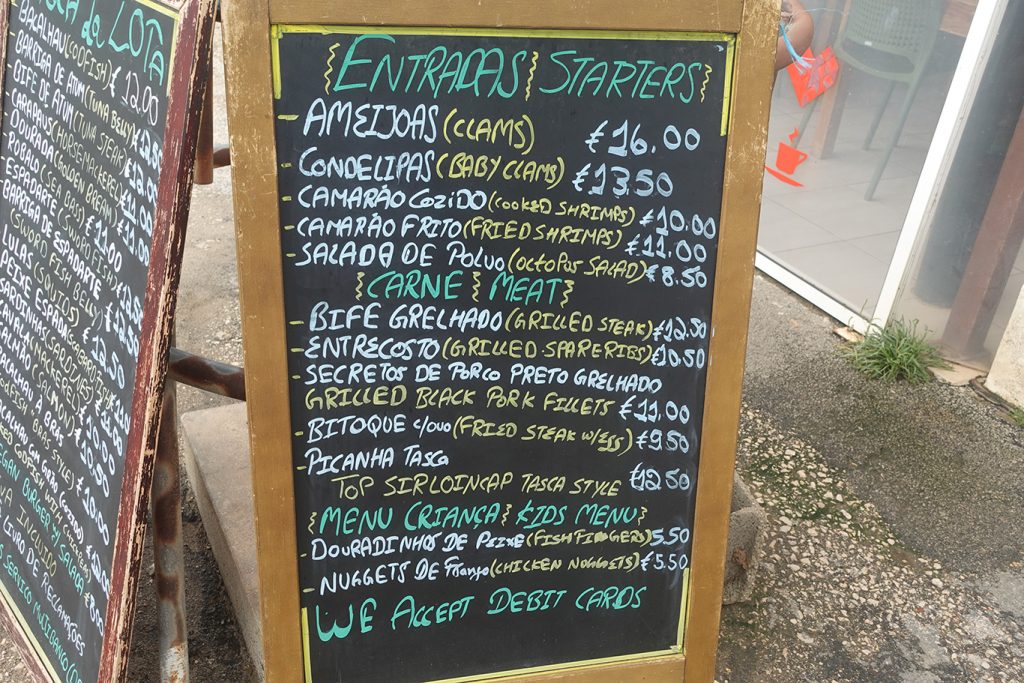 DA LOTA
BACALHAU (CODFISH) € 12.00
BARRIGA DE ATUM (TUNA BELLY)
BIFE DE ATUM (TUNA STEAK)
CARAPAUS (HORSEMACKEREL)
DOURADA (GOLDEN BREAM)
ROBALO (SEA BASS) €
- ESPADARTE (SWORD FISH)
BARRIGA DE ESPADARTE
(SWORD FISH BELLY)
LULAS (SQUIDS)
PEIXE ESPADA
SARDINHAS (SARDINES)
CAVALA (MACKEREL)
SALMÃO (SALMON)
BACALHAU À BRÁS
(CODFISH BRAS STYLE)
BACALHAU COM GRÃO COZIDO
VEGAN BURGER
IVA INCLUIDO
LIVRO DE RECLAMAÇÕES
SERVIÇO MULTIBANCO
{ENTRADAS} STARTERS}
- AMEIJOAS (CLAMS) €16.00
- CONDELIPAS (BABY CLAMS) €13.50
- CAMARÃO COZIDO (COOKED SHRIMPS) €10.00
- CAMARÃO FRITO (FRIED SHRIMPS) €11.00
- SALADA DE POLVO (OCTOPUS SALAD) €8.50
{CARNE} MEAT}
- BIFE GRELHADO (GRILLED STEAK) €12.50
- ENTRECOSTO (GRILLED SPARERIBS) €10.50
- SECRETOS DE PORCO PRETO GRELHADO
GRILLED BLACK PORK FILLETS €11.00
- BITOQUE C/OVO (FRIED STEAK W/EGG) €9.50
- PICANHA TASCA
TOP SIRLOINCAP TASCA STYLE €12.50
{MENU CRIANÇA} KIDS MENU}
- DOURADINHOS DE PEIXE (FISH FINGERS) 5.50
- NUGGETS DE FRANGO (CHICKEN NUGGETS) €5.50
WE ACCEPT DEBIT CARDS